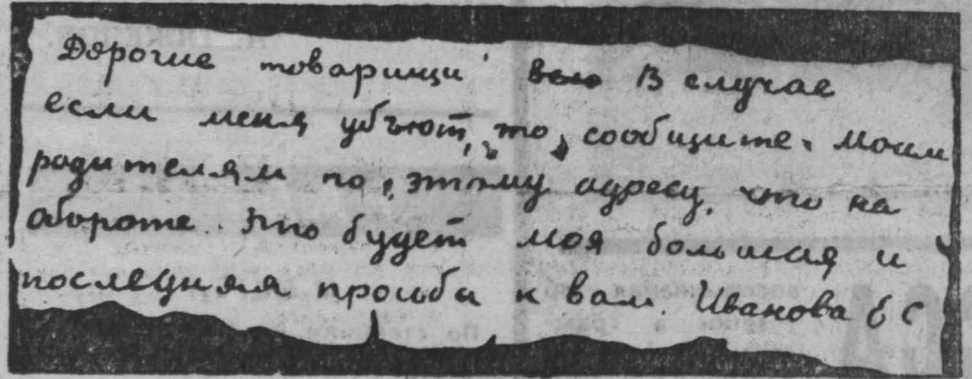 Дорогие товарищи В случае
если меня убъют, то, сообщите. моим
родителям по, этому адресу, что на
обороте. Это будет моя большая и
последняя просьба к вам. Иванова Е С